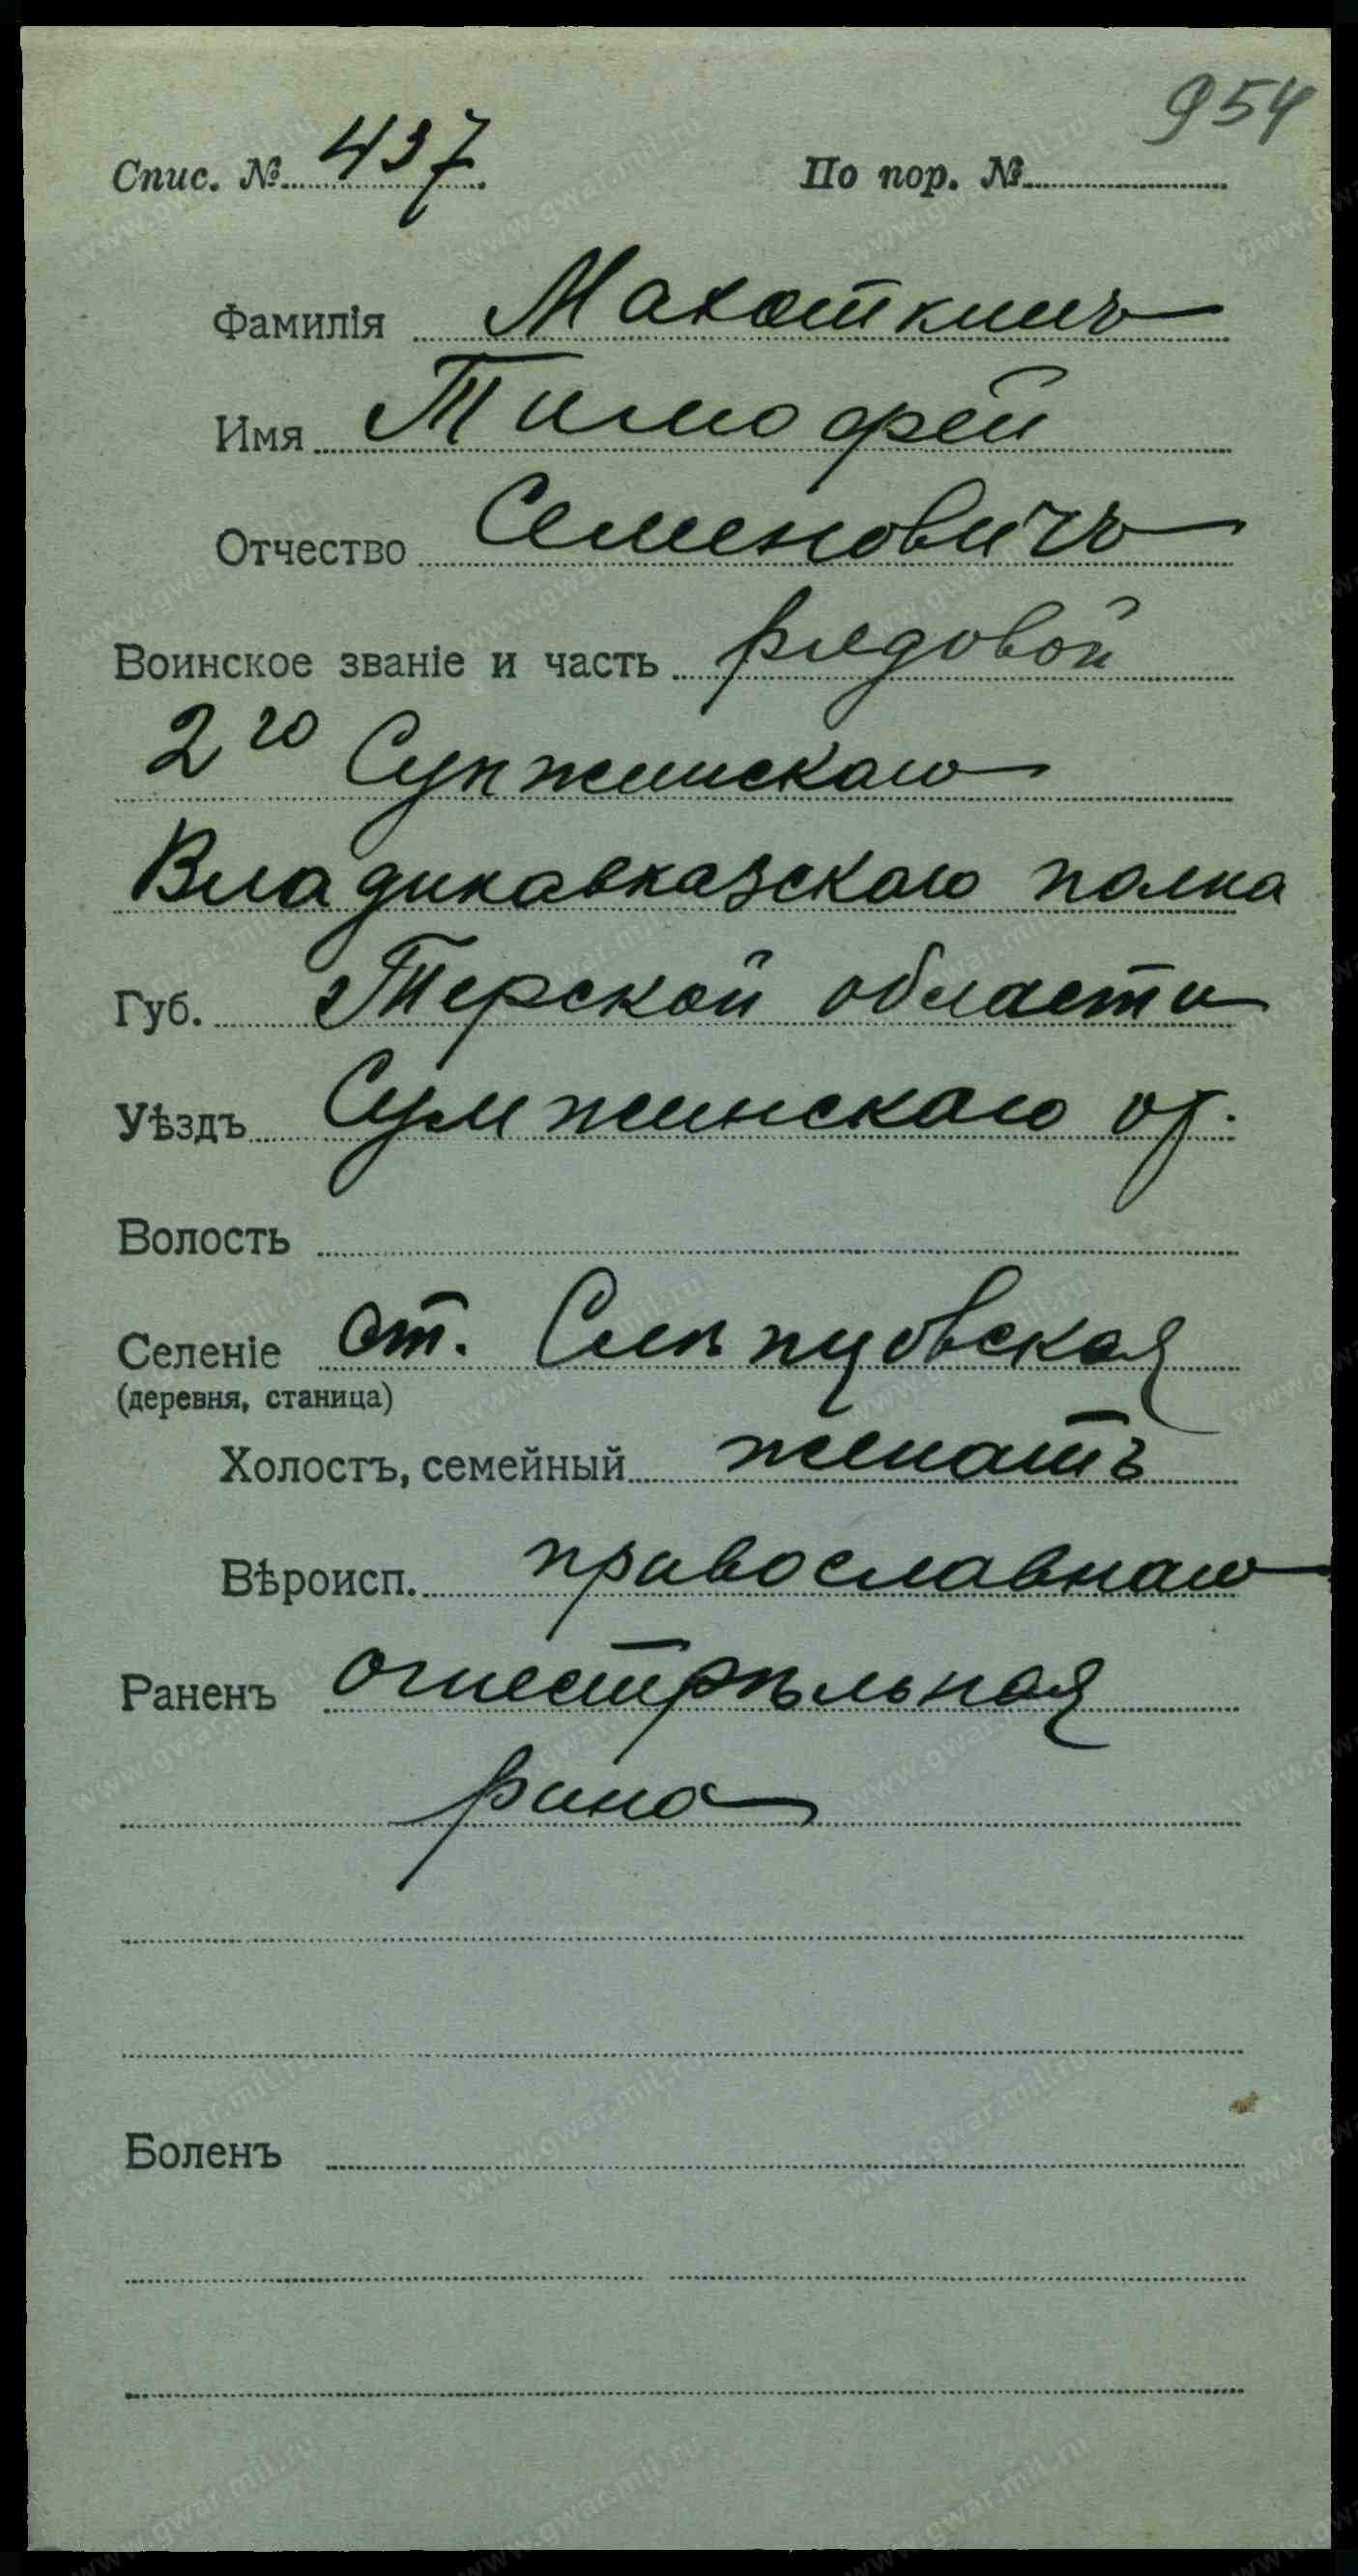 954
Спис. № 437 По пор. №
Фамилія Махоткинъ
Имя Тимофей
Отчество Семеновичъ
Воинское званіе и часть рядовой
2го Сунженскаго
Владикавказскаго полка
Губ. Терской области
Уѣздъ Сумженскаго от.
Волость
Селеніе ст. Слѣпцовская
(деревня, станица)
Холостъ, семейный женатъ
Вѣроисп. православнаго
Раненъ огнестрѣльная
рана
Боленъ